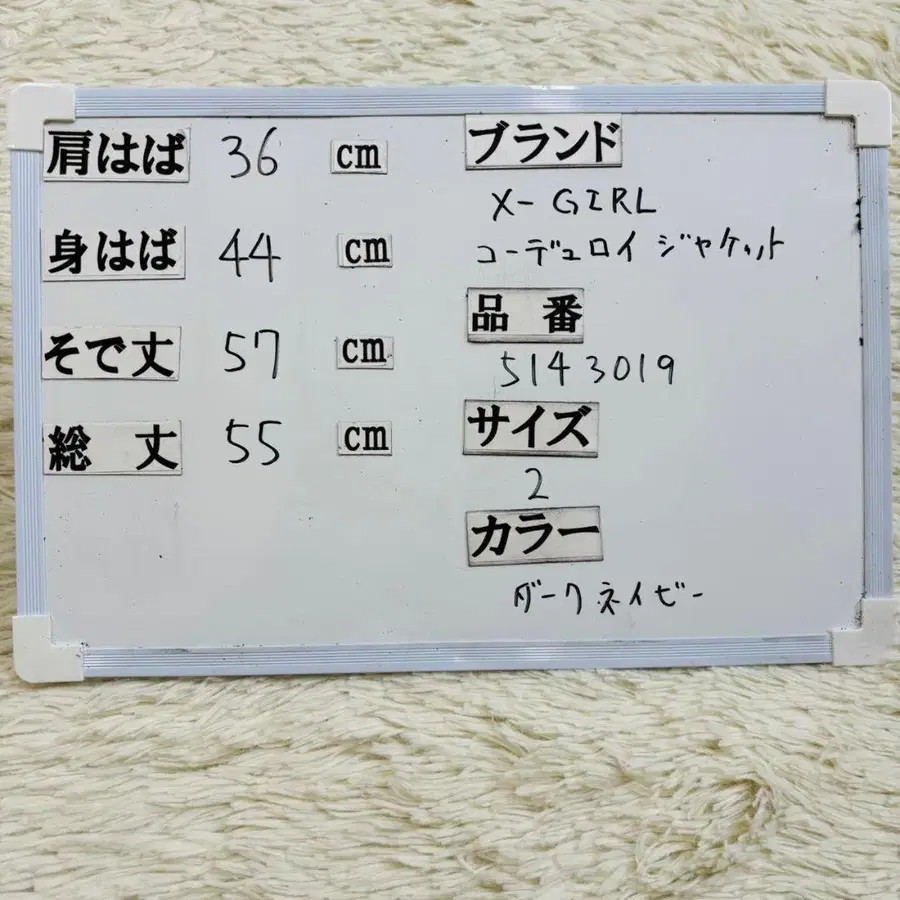 肩はば 36 cm
身はば 44 cm
そで丈 57 cm
総 丈 55 cm
ブランド
X-GIRL
コーデュロイ ジャケット
品 番
5143019
サイズ
2
カラー
ダークネイビー